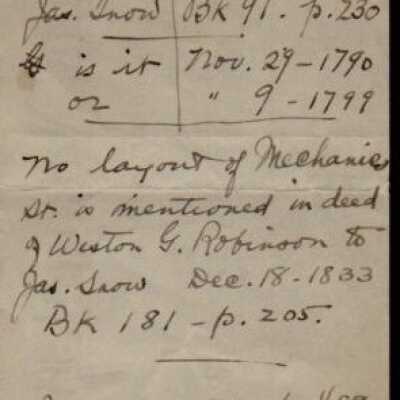 Jas. Snow BK 91. p. 230
is it Nov. 29-1790
or " 9-1799
No layout of Mechanic
St. is mentioned in deed
of Weston G. Robinson to
Jas. Snow Dec. 18-1833
BK 181-p. 205.